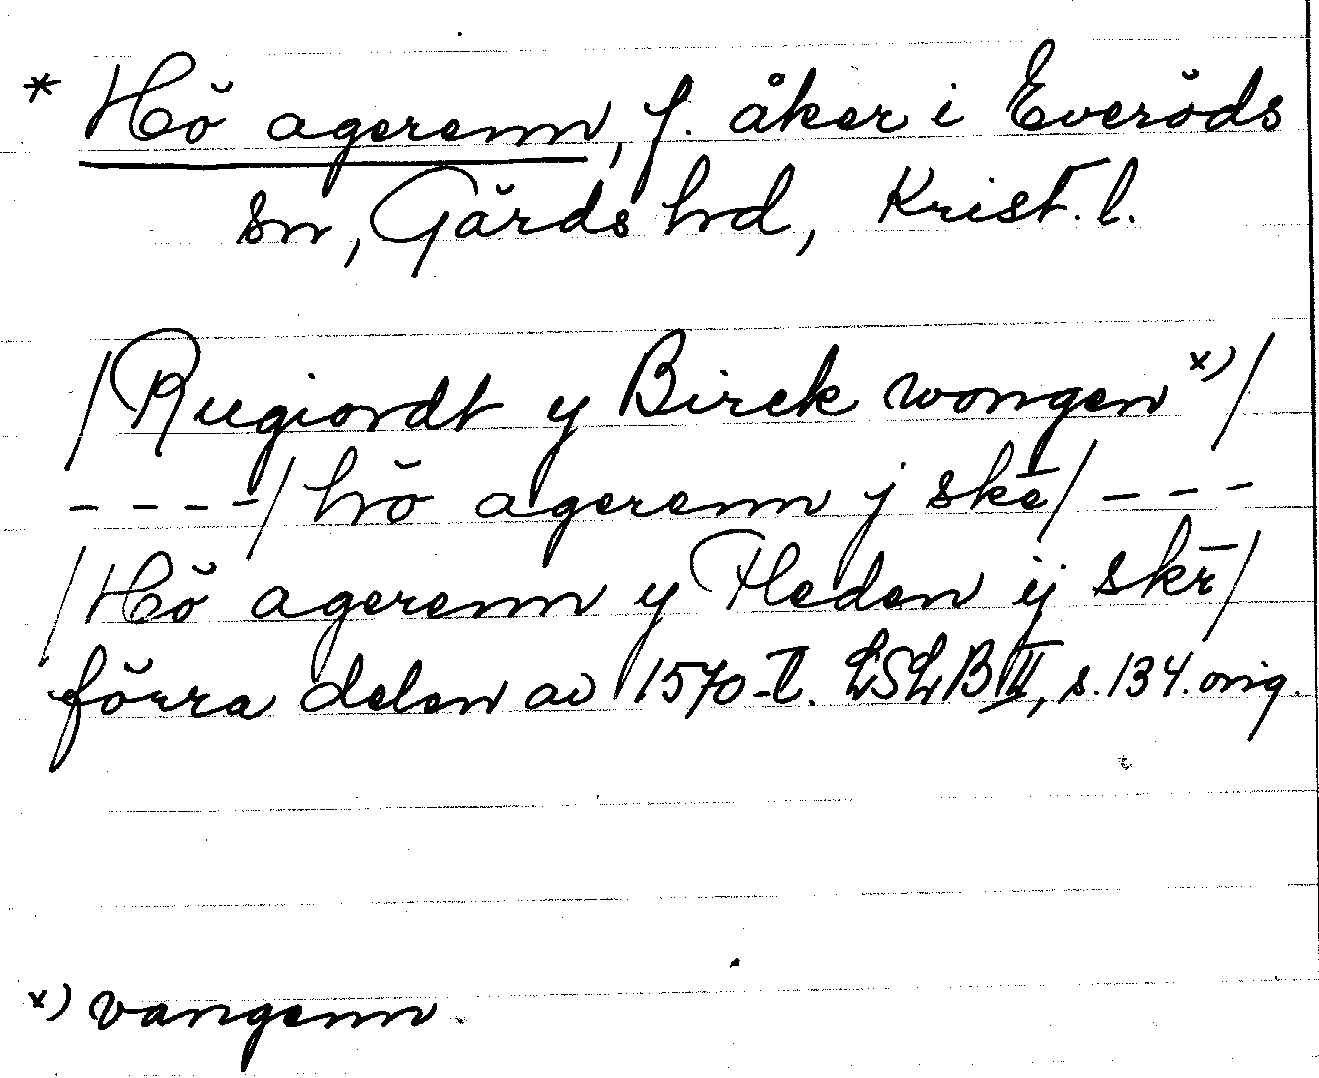 * Hö agerenn, f. åker i Everöds
sn, Gärds hd, Krist. l.
/Rugiordt y Birck wongen x)/
- - - -/hö agerenn j skē/ - - -
/Hö agerenn y Heden ij skr̄/
förra delen av 1570-t. LSLB II, s. 134. orig.
x) vangenn.